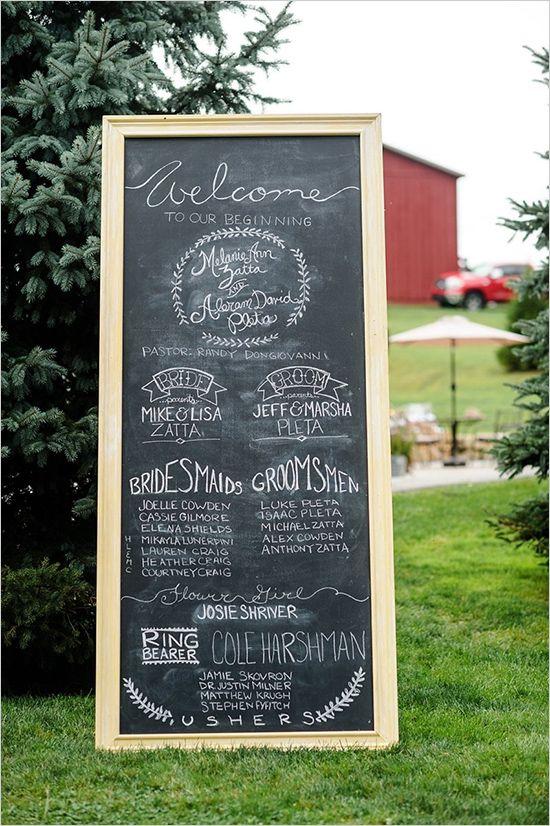 Welcome
TO OUR BEGINNING
Melanie Ann
Zatta
AND
David
Pleta
PASTOR: RANDY DONGIOVANNI
BRIDE
parents
MIKE & LISA
ZATTA
GROOM
parents
JEFF & MARSHA
PLETA
BRIDESMAIDS
JOELLE COWDEN
CASSIE GILMORE
ELENA SHIELDS
MIKAYLA LUNERDINI
LAUREN CRAIG
HEATHER CRAIG
COURTNEY CRAIG
GROOMSMEN
LUKE PLETA
ISAAC PLETA
MICHAEL ZATTA
ALEX COWDEN
ANTHONY ZATTA
Flower Girl
JOSIE SHRIVER
RING
BEARER
COLE HARSHMAN
JAMIE SKOVRON
DR. JUSTIN MILNER
MATTHEW KRUGH
STEPHEN FYFITCH
USHERS